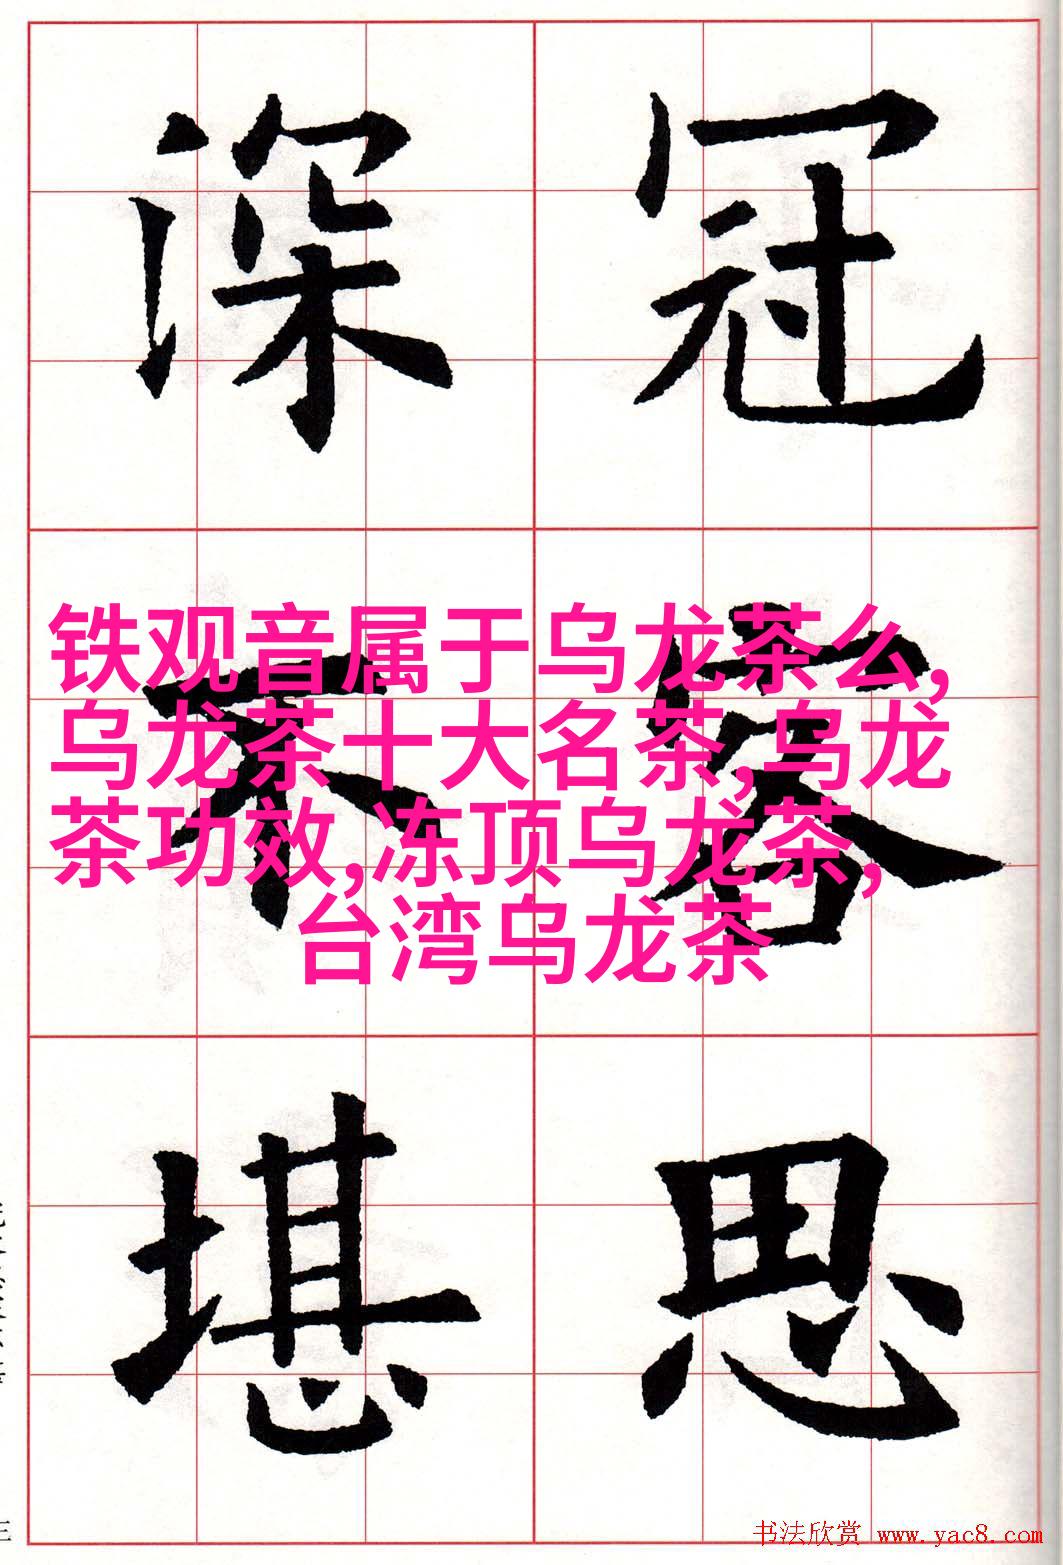 深冠
不容
堪思
铁观音属于乌龙茶么,
乌龙茶十大名茶,乌龙
茶功效,冻顶乌龙茶,
台湾乌龙茶
书法欣赏 www.yac8.com